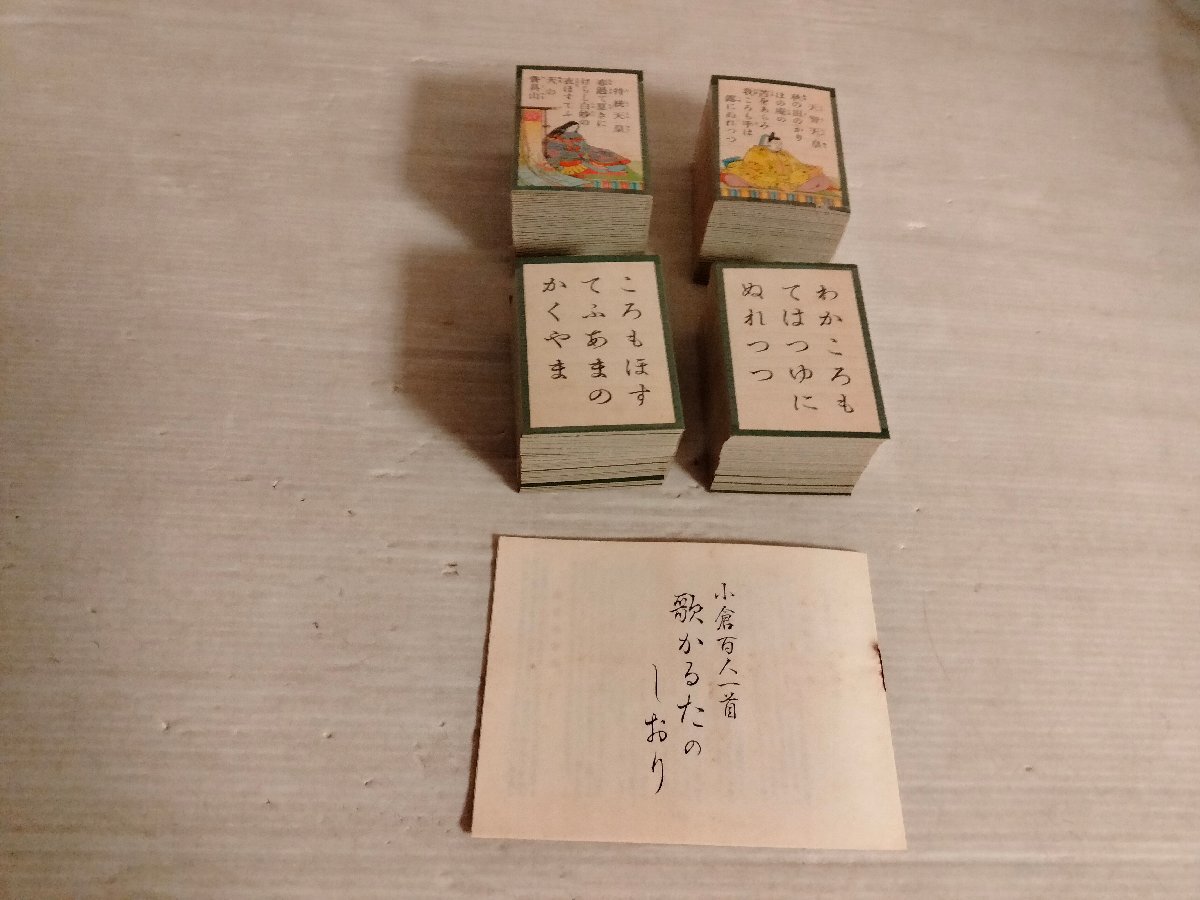 天智天皇
秋の田のかり
ほの庵の
苫をあらみ
我ころも手は
露にぬれつつ
持統天皇
春過て夏きに
けらし白妙の
衣ほすてふ
天の
香具山
わかころも
てはつゆに
ぬれつつ
ころもほす
てふあまの
かくやま
小倉百人一首
歌かるたの
しおり